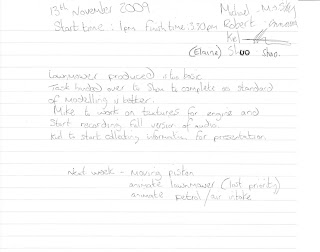 13th November 2009
Start time: 1pm Finish time: 3:30pm
Robert
Kel
(Elaine) Shuo Shuo.
Lawnmower produced is too basic
Task handed over to Shuo to complete as standard
of modelling is better.
Mike to work on textures for engine and
Start recording full version of audio.
Kel to start collecting information for presentation.
Next week - Moving piston
animate lawnmower (1st priority)
animate petrol/air intake